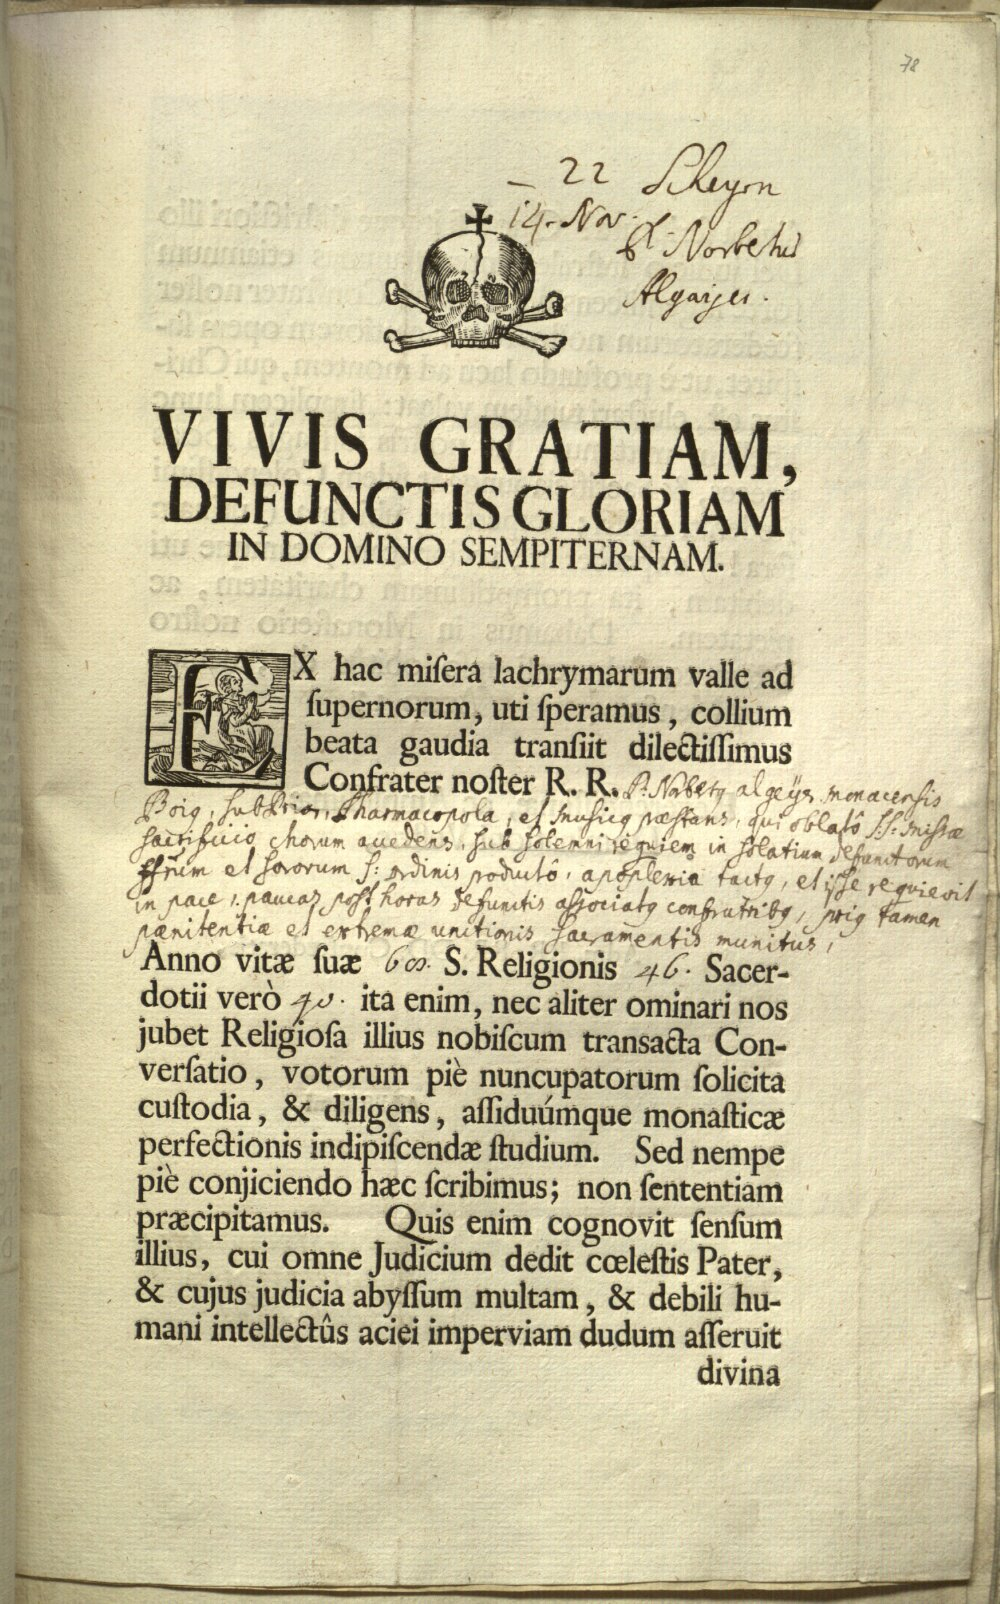 78
22 Scheyrn
14. Nov. P. Norbetus
Algaijer.
VIVIS GRATIAM,
DEFUNCTIS GLORIAM
IN DOMINO SEMPITERNAM.
EX hac miſera lachrymarum valle ad
ſupernorum, uti ſperamus, collium
beata gaudia tranſiit dilectiſſimus
Confrater noſter R. R. P. Norbetꝰ algeyr monacensis
Boiꝰ, subPrior, Pharmacopola, et musicꝰ præstans, qui oblatô SS. missæ
sacrificio chorum accedens, sub solemni requiem in solatium defunctorum
ffrum et sororum S. ordinis productô, apoplexia tactꝰ, et ipse requievit
in pace, paucas post horas defunctis associatꝰ confratribꝰ, priꝰ tamen
pænitentiæ et extremæ unctionis sacramentis munitus,
Anno vitæ ſuæ S. Religionis 46. Sacer-
dotii verò 40. ita enim, nec aliter ominari nos
jubet Religioſa illius nobiſcum transacta Con-
verſatio, votorum piè nuncupatorum ſolicita
cuſtodia, & diligens, aſſiduúmque monaſticæ
perfectionis indipiſcendæ ſtudium. Sed nempe
piè conjiciendo hæc ſcribimus; non ſententiam
præcipitamus. Quis enim cognovit ſenſum
illius, cui omne Judicium dedit cœleſtis Pater,
& cujus judicia abyſſum multam, & debili hu-
mani intellectûs aciei imperviam dudum aſſeruit
divina